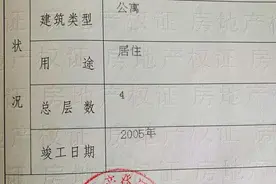 建筑类型 公寓
状
用途 居住
况
总层数 4
竣工日期 2005年